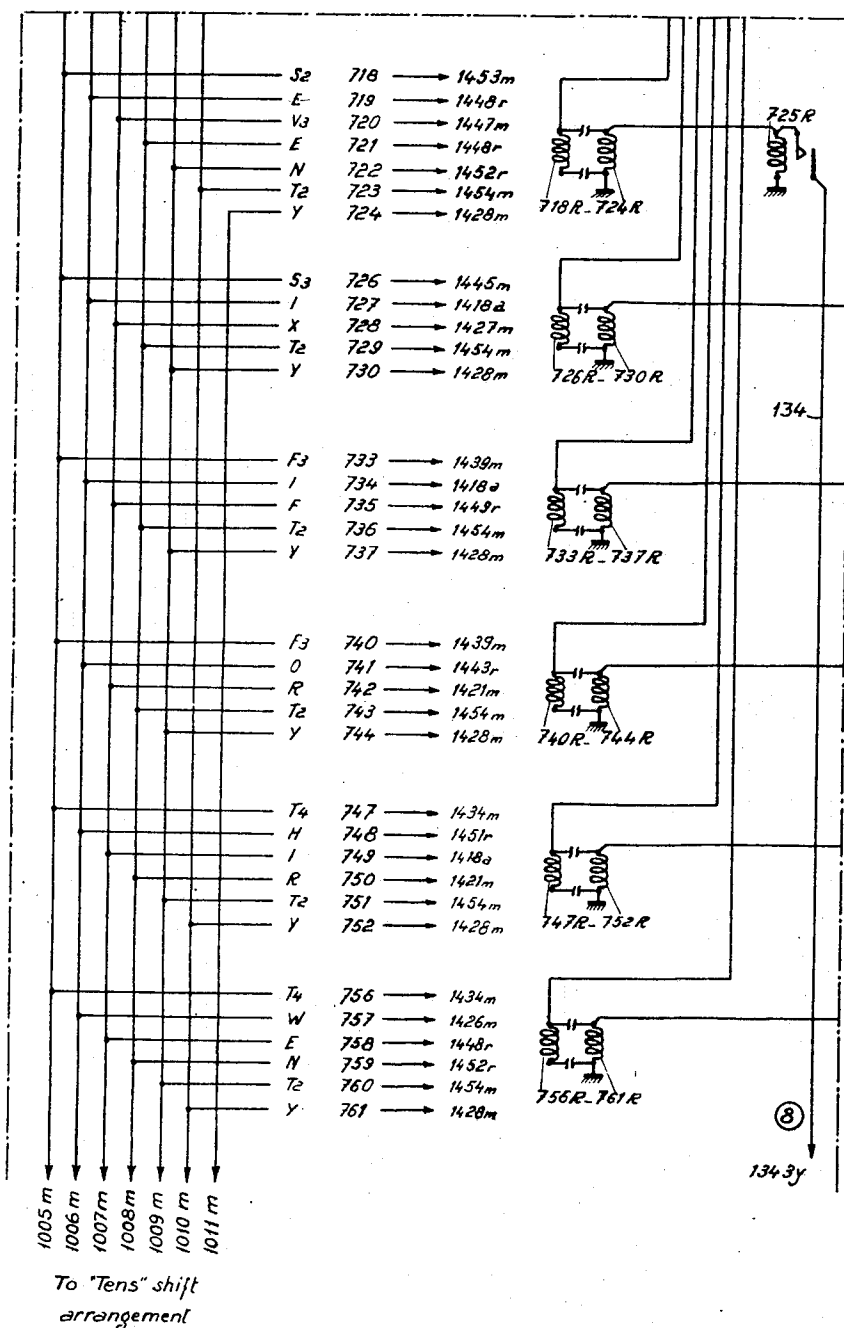 S2 718 1453m
E 719 1448r
V3 720 1447m
E 721 1448r
N 722 1452r
T2 723 1454m
Y 724 1428m
725R
718R-724R
S3 726 1445m
I 727 1418a
X 728 1427m
T2 729 1454m
Y 730 1428m
726R-730R
134
F3 733 1439m
I 734 1418a
F 735 1449r
T2 736 1454m
Y 737 1428m
733R-737R
F3 740 1439m
O 741 1443r
R 742 1421m
T2 743 1454m
Y 744 1428m
740R-744R
T4 747 1434m
H 748 1451r
I 749 1418a
R 750 1421m
T2 751 1454m
Y 752 1428m
747R-752R
T4 756 1434m
W 757 1426m
E 758 1448r
N 759 1452r
T2 760 1454m
Y 761 1428m
756R-761R
8
1343y
1005 m
1006 m
1007m
1008m
1009 m
1010 m
1011 m
To "Tens" shift
arrangement